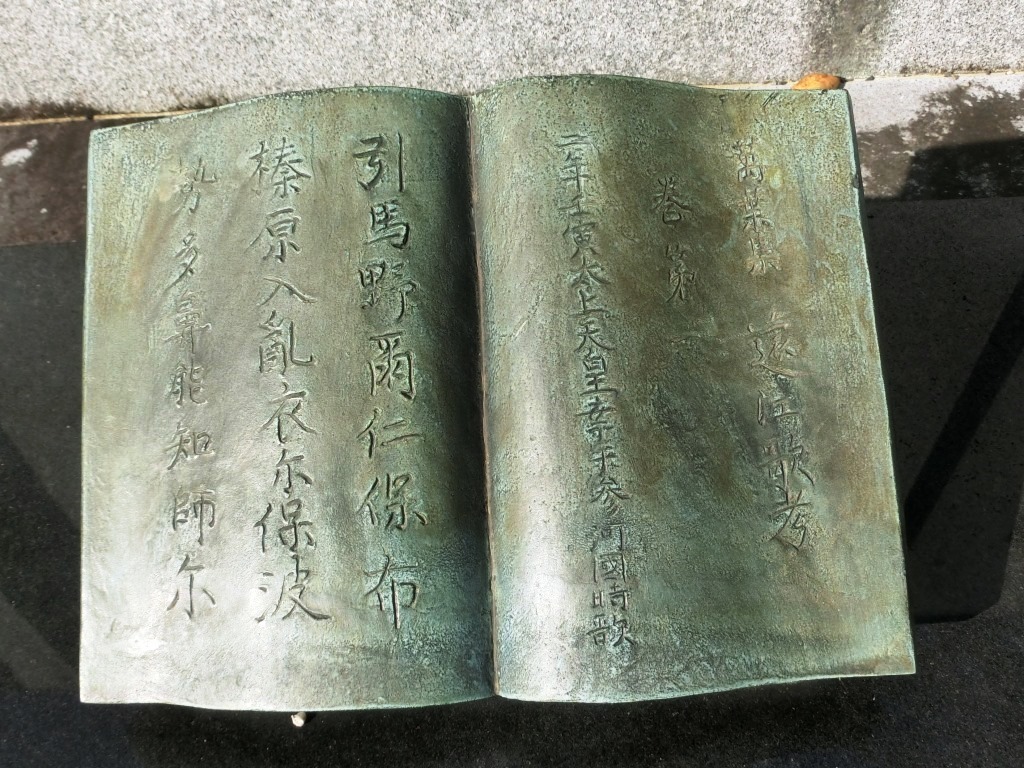 萬葉集 遠江歌考
巻第一
二年壬寅太上天皇幸于参河國時歌
引馬野爾仁保布
榛原入亂衣尓保波
勢多鼻能知師尓